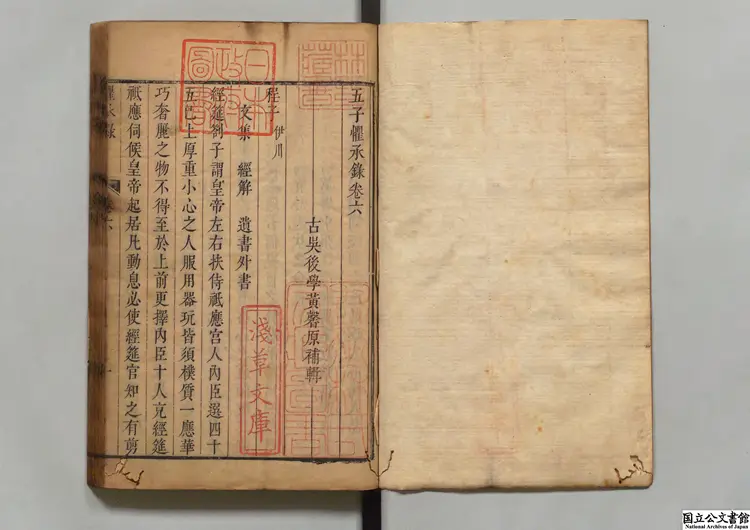 五子懼承錄卷六
古吳後學黃原補輯
程子 伊川
文集 經解 遺書外書
經筵劄子謂皇帝左右扶侍祗應宮人內臣選四十
五已上厚重小心之人服用器玩皆須樸質一應華
巧奢麗之物不得至於上前更擇內臣十人充經筵
祗應伺候皇帝起居凡動息必使經筵官知之有剪
懼承錄 卷六 一
日本政府圖書
林氏藏書
淺草文庫
国立公文書館
National Archives of Japan